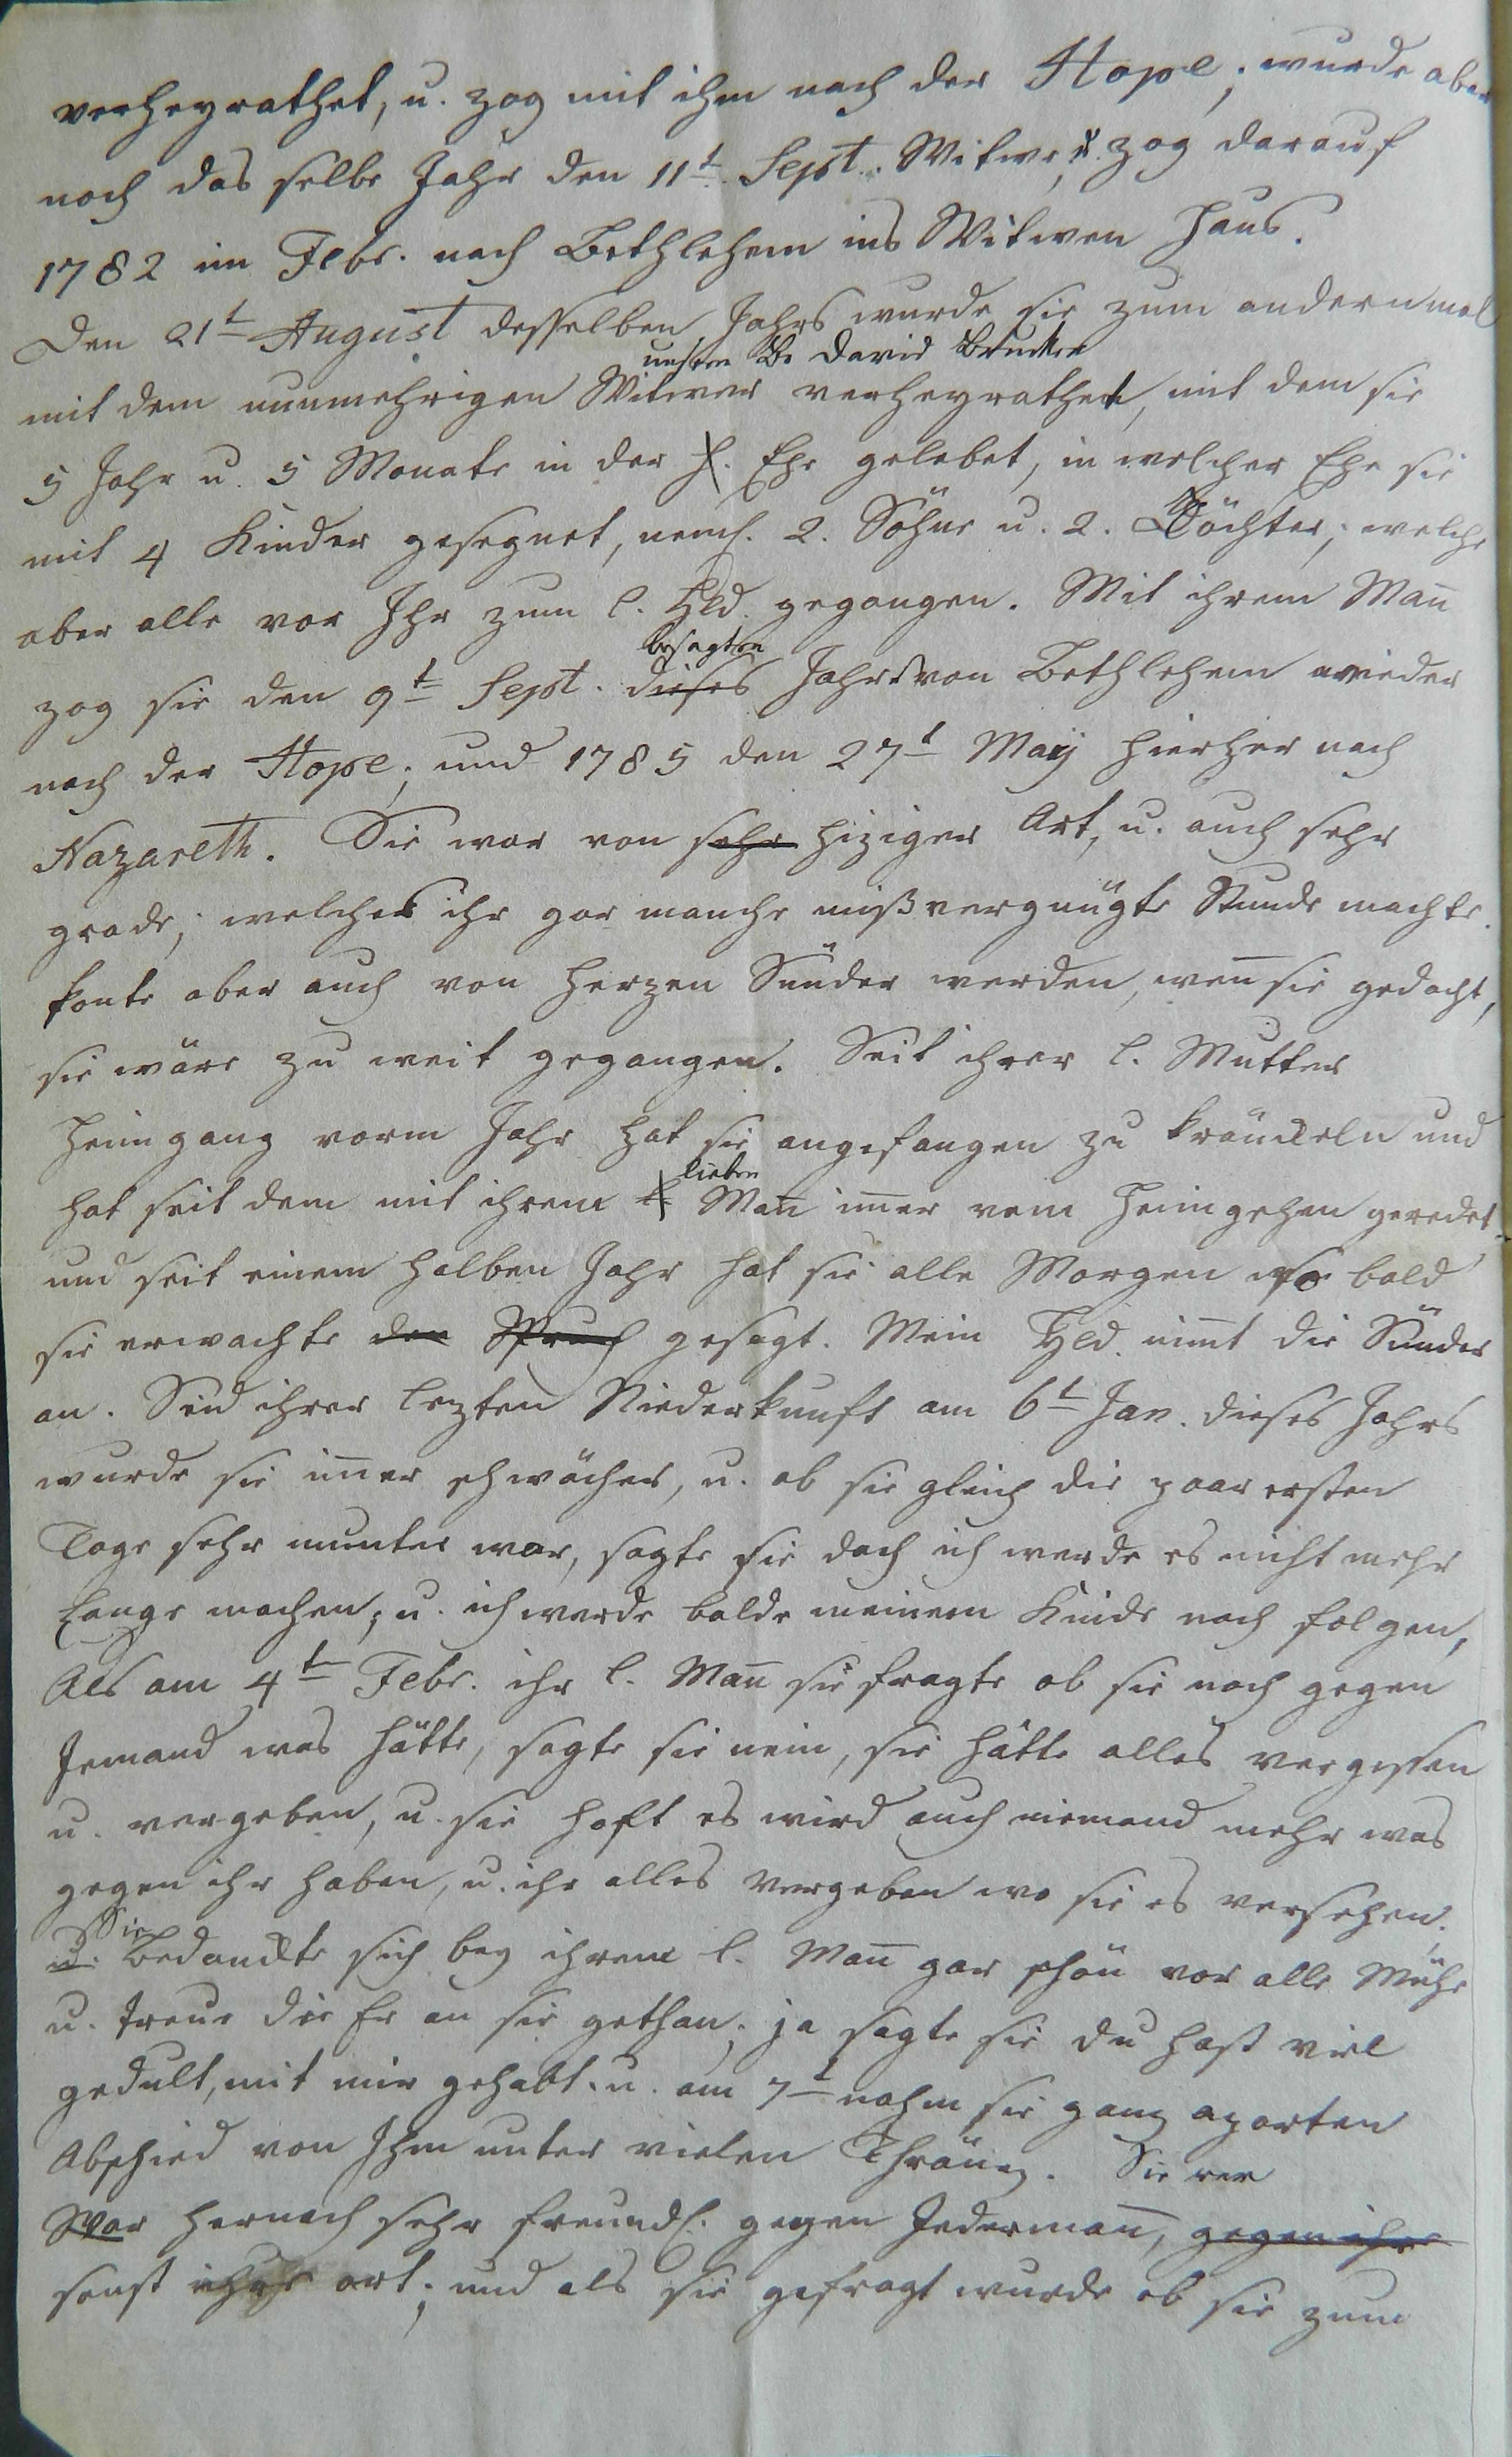 verheyrathet, u. zog mit ihm nach der Hope; wurde aber
noch das selbe Jahr den 11t Sept. Witwe, u. zog darauf
1782 im Febr. nach Bethlehem ins Witwen Haus.
Den 21t August desselben Jahrs wurde sie zum andernmal
unsern Br David Brucker
mit dem nunmehrigen Witwer verheyrathet, mit dem sie
5 Jahr u. 5 Monate in der h. Ehe gelebet, in welcher Ehe sie
mit 4 Kinder gesegnet, neml. 2. Söhne u. 2. Töchter; welche
aber alle vor Ihr zum l. Hld. gegangen. Mit ihrem Mañ
besagten
zog sie den 9t Sept. dieses Jahrs von Bethlehem wieder
nach der Hope; und 1785 den 27t Maÿ hierher nach
Nazareth. Sie war von sehr hiziger Art, u. auch sehr
grade; welches ihr gar manche mißvergnügte Stunde machte.
konte aber auch von Herzen Sünder werden, weñ sie gedacht,
sie wäre zu weit gegangen. Seit ihrer l. Mutter
Heimgang vorm Jahr hat sie angefangen zu kränckeln und
lieben
hat seit dem mit ihrem l Mañ im̃er vom Heimgehen geredet
und seit einem halben Jahr hat sie alle Morgen so bald
sie erwachte den Spruch gesagt. Mein Hld. nim̃t die Sünder
an. Seid ihrer lezten Niederkunft am 6t Jan. dieses Jahrs
wurde sie im̃er schwächer, u. ob sie gleich die paar ersten
Tage sehr munter war, sagte sie doch ich werde es nicht mehr
lange machen; u. ich werde balde meinem Kinde nach folgen,
Als am 4t Febr. ihr l. Mañ sie fragte ob sie noch gegen
Jemand was hätte, sagte sie nein, sie hätte alles vergessen
u. vergeben, u. sie hoft es wird auch niemand mehr was
gegen ihr haben, u. ihr alles vergeben wo sie es versehen.
Sie
u. bedanckte sich bey ihrem l. Mañ gar schön vor alle Mühe
u. treue die Er an sie gethan; ja sagte sie du hast viel
gedult, mit mir gehabt. u. am 7t nahm sie ganz aparten
Abschied von Ihm unter vielen Thränen. Sie war
War hernach sehr freundl. gegen Jederman̄, gegen ihre
sonst ihre art; und als sie gefragt wurde ob sie zum